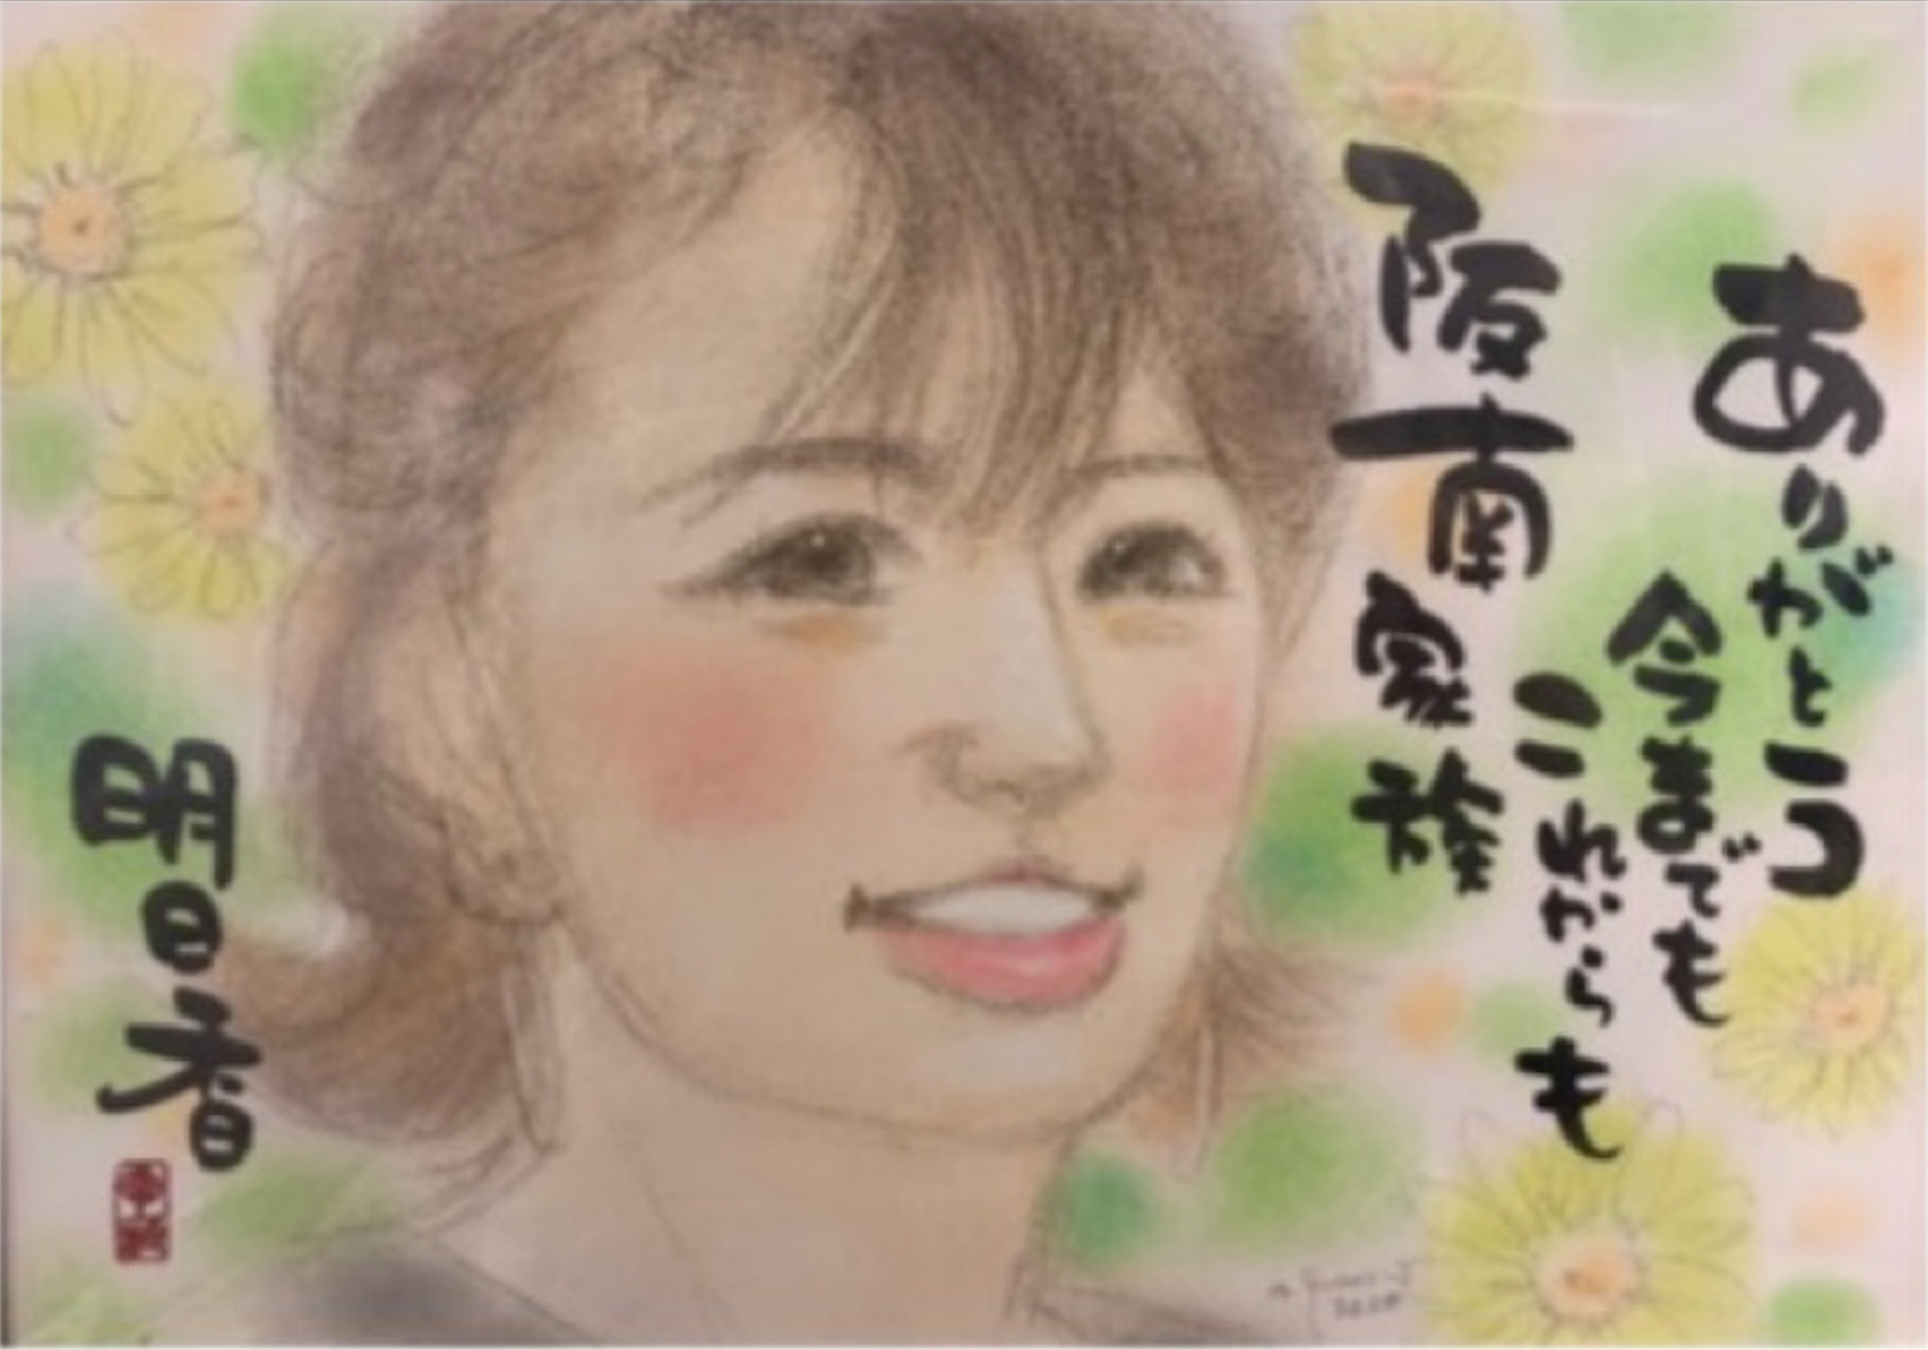 ありがとう
今までも
これからも
阪南家族
明日香
2020